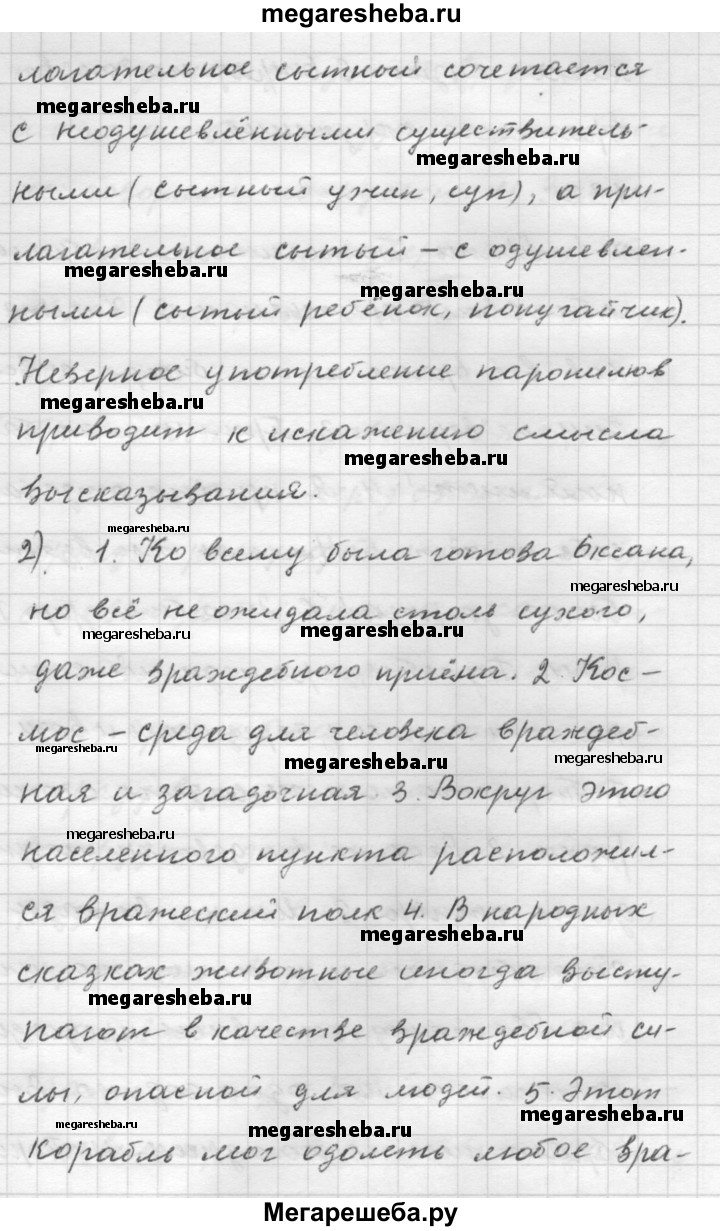 megaresheba.ru
лагательное сытный сочетается
megaresheba.ru
с неодушевлёнными существитель-
megaresheba.ru
ными (сытный ужин, суп), а при-
лагательное сытый – с одушевлен-
megaresheba.ru
megaresheba.ru
ными (сытый ребёнок, попугайчик).
Неверное употребление паронимов
megaresheba.ru
приводит к искажению смысла
megaresheba.ru
высказывания.
megaresheba.ru
2). 1. Ко всему была готова Оксана,
megaresheba.ru
но всё не ожидала столь сухого,
megaresheba.ru
megaresheba.ru
даже враждебного приёма. 2. Кос-
мос – среда для человека враждеб-
megaresheba.ru
megaresheba.ru
megaresheba.ru
ная и загадочная 3. Вокруг этого
megaresheba.ru
населенного пункта расположил-
ся вражеский полк 4. В народных
megaresheba.ru
сказках животные иногда высту-
megaresheba.ru
пают в качестве враждебной си-
лы, опасной для людей. 5. Этот
megaresheba.ru
megaresheba.ru
корабль мог одолеть любое вра-
megaresheba.ru
Мегарешеба.ру